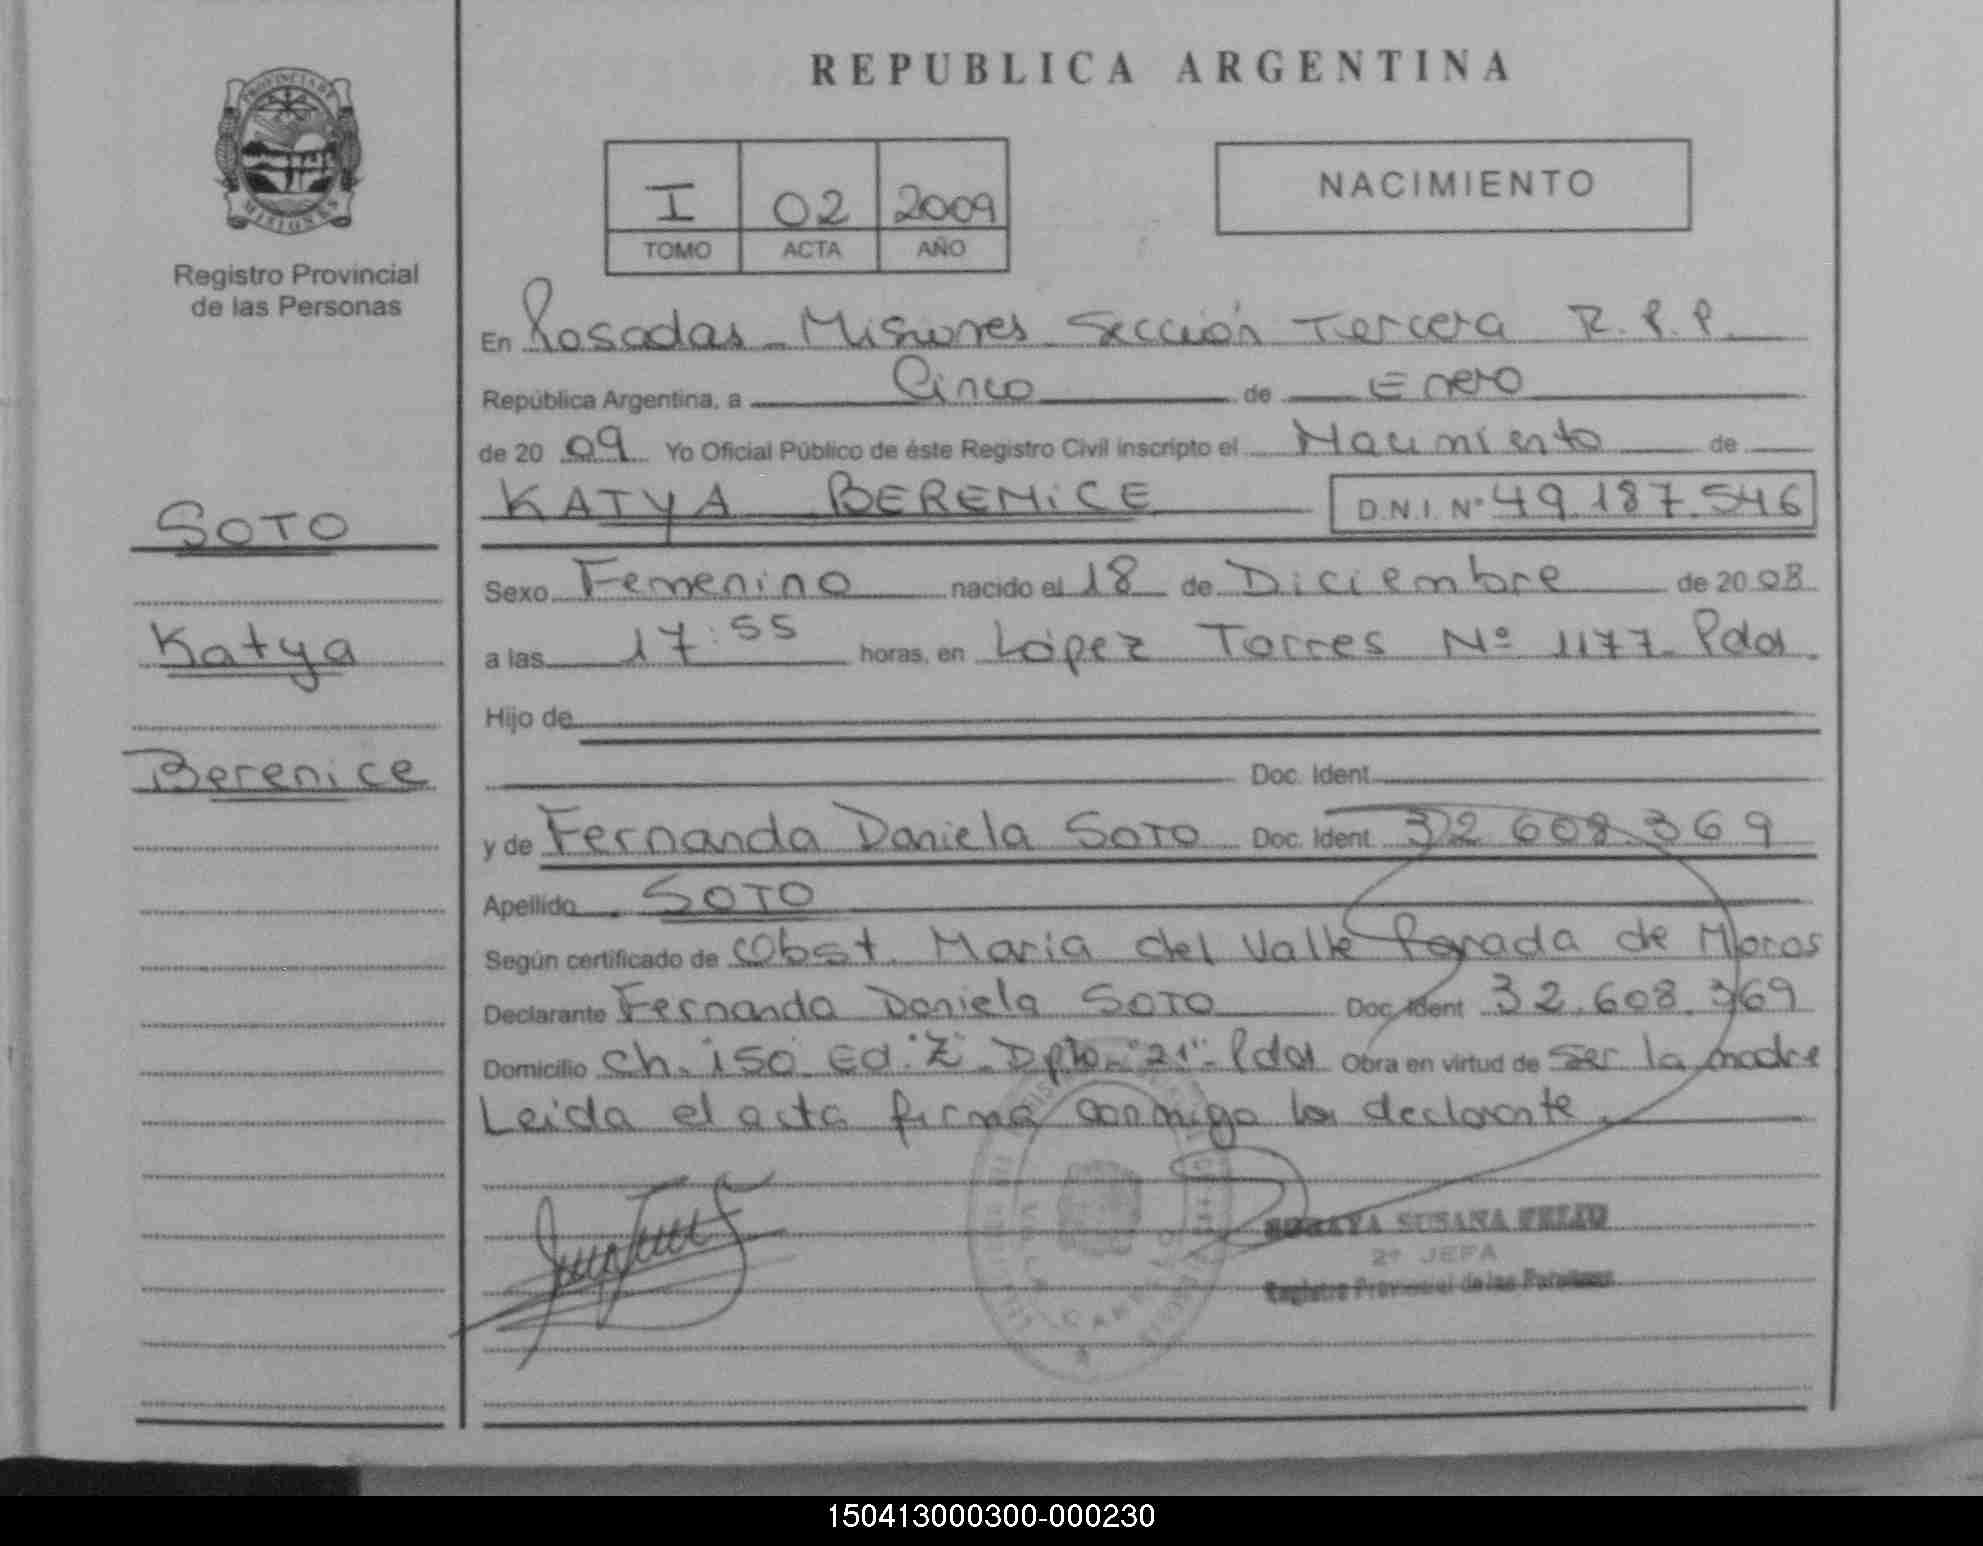 PROVINCIA DE
MISIONES
Registro Provincial
de las Personas
SOTO
Katya
Berenice
REPUBLICA ARGENTINA
I 02 2009
TOMO ACTA AÑO
NACIMIENTO
En Posadas - Misiones Sección Tercera R.P.P.
República Argentina, a Cinco de Enero
de 20 09 Yo Oficial Público de éste Registro Civil inscripto el Nacimiento de
KATYA BERENICE D.N.I. Nº 49.187.546
Sexo Femenino nacido el 18 de Diciembre de 20 08
a las 17:55 horas, en López Torres Nº 1177 Pdas.
Hijo de
Doc. Ident.
y de Fernanda Daniela SOTO Doc. Ident. 32 608.369
Apellido SOTO
Según certificado de Obst. María del Valle Parada de Moros
Declarante Fernanda Daniela SOTO Doc. Ident 32.608.369
Domicilio Ch. 150 Ed. "Z" - Dpto. "21" - Pdas Obra en virtud de Ser la madre
Leida el acta firma conmigo la declarante.
SORAYA SUSANA FELIU
2ª JEFA
Registro Provincial de las Personas
150413000300-000230